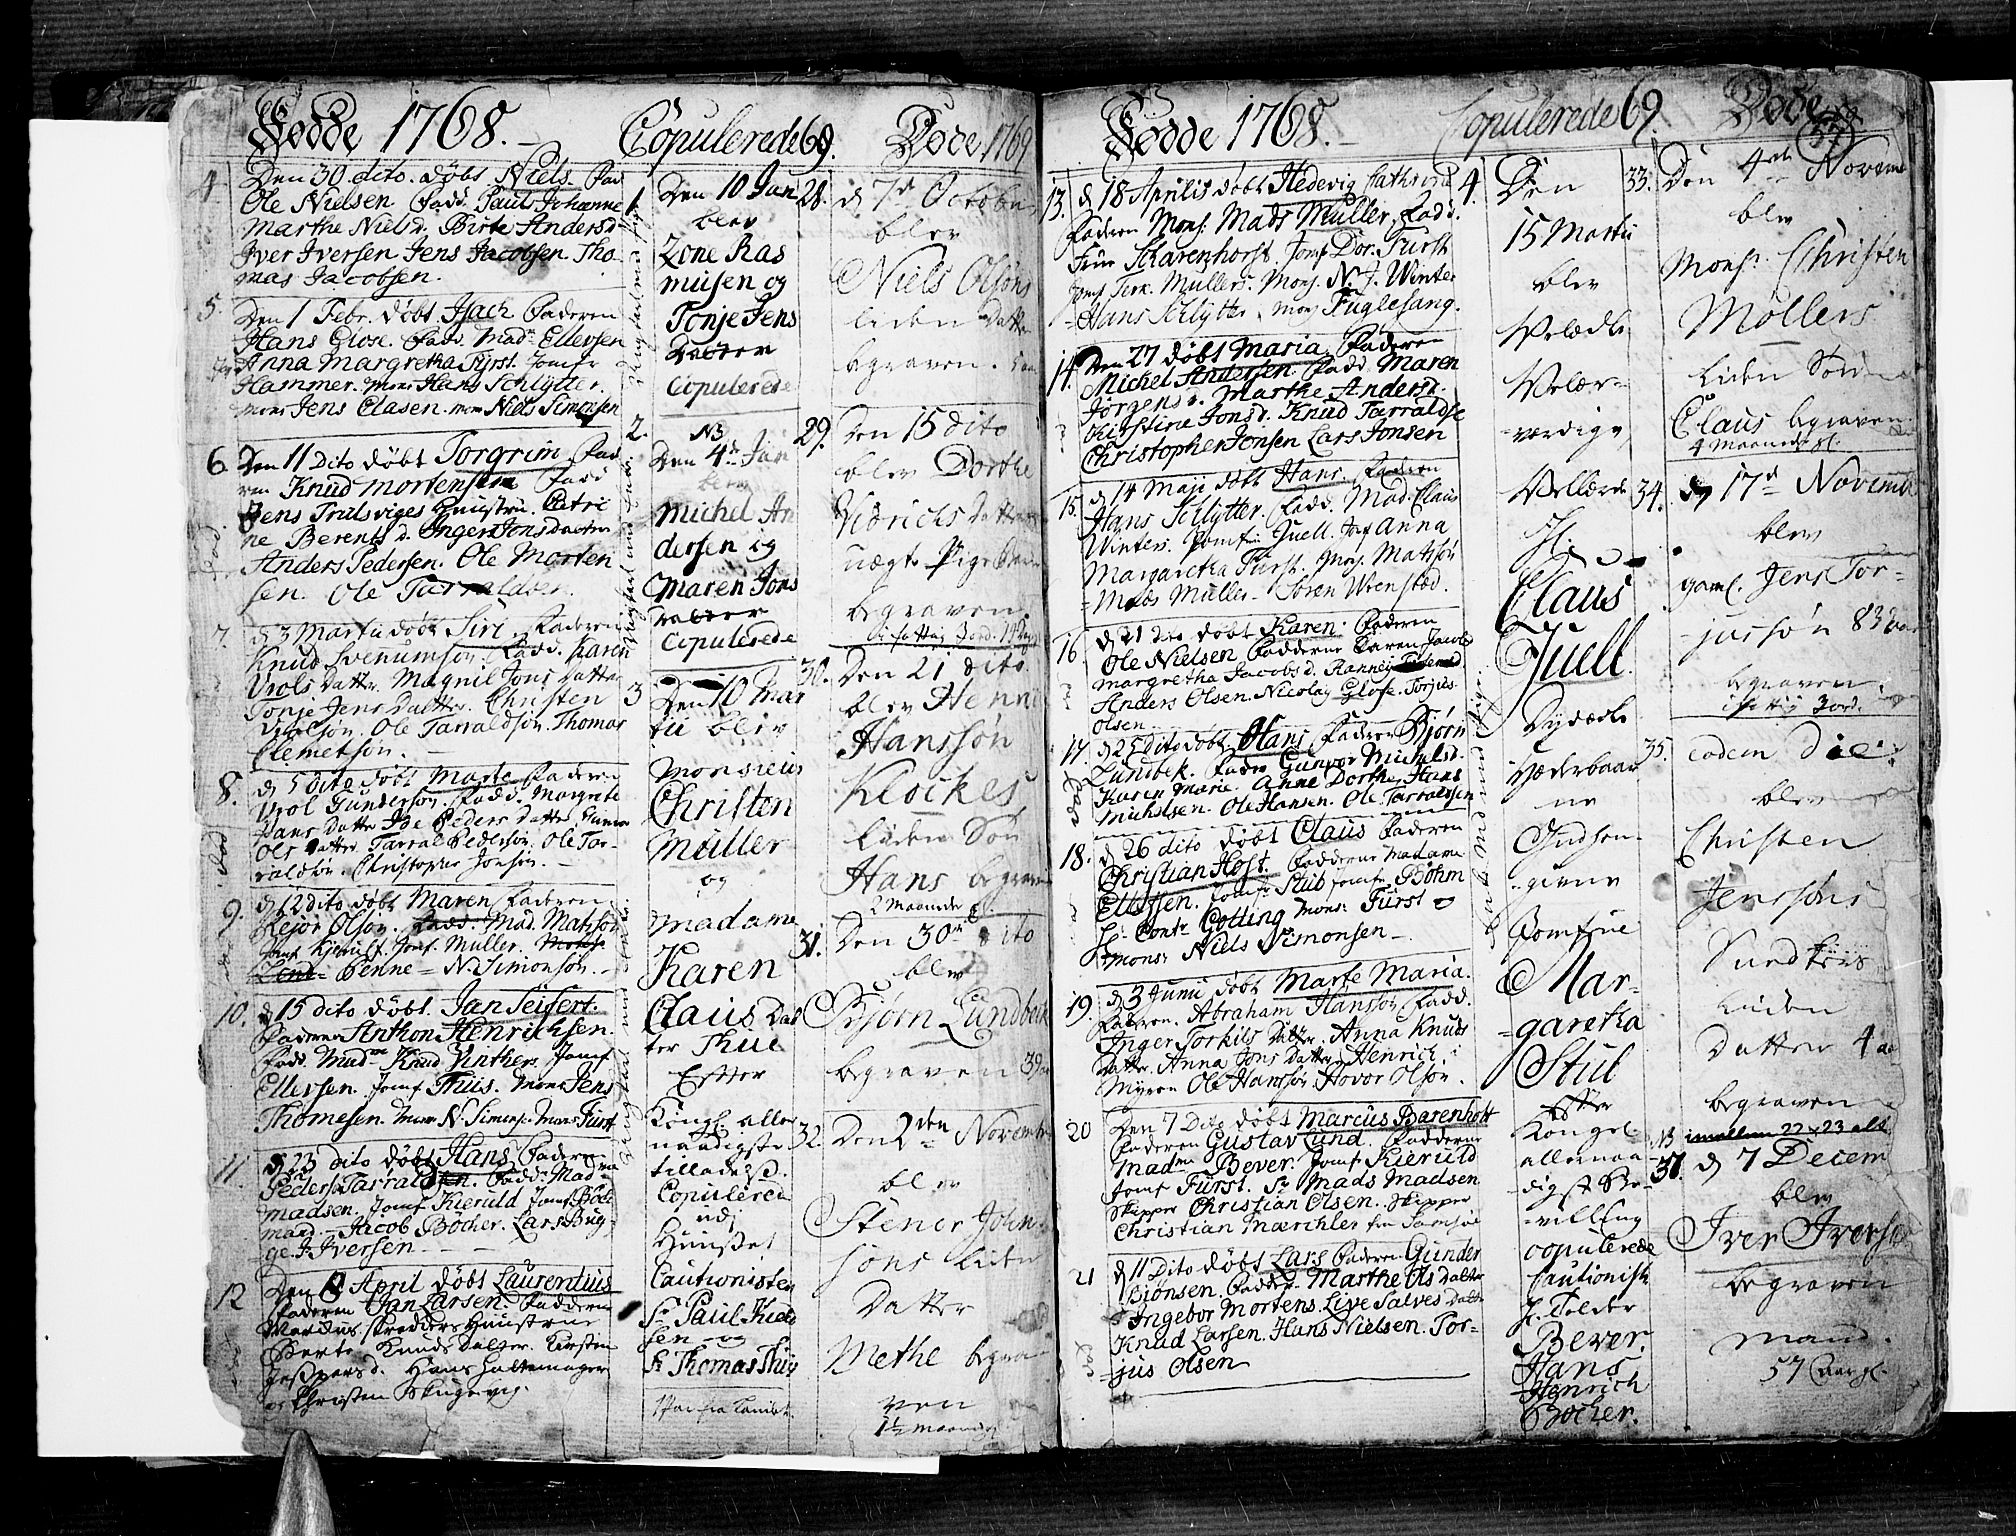 Fødde 1768.
4 Den 30 dito. døbt Niels. Fad
Ole Nielsen Fadd. Paul Johanne
Marthe Nielsd. Birte Andersd
Iver Iversen Jens Jacobsen. Tho
mas Jacobsen.
5. Den 1 Febr. døbt Isach Faderen
Hans Glose. Fadd. Mad. Ellersen
Anna Margretha Fürst. Jomfr
Hammer. Mons Hans Schlytter.
mons Jens Clasen. mons Niels Simonsen
6. Den 11 Dito døbt Torgrim. Fad
ren Knud Mortensen Fadd
Jens Trulsviges Huustru. Catri
ne Berents d. Inger Jonsdatter
Anders Pedersen. Ole Morten
sen. Ole Tarraldsen.
7. d 3 Martii døbt Siri. Faderen
Knud Svenumsøn. Fadd. Karen
Wols Datter. Magnil Jons Datter
Tonje Jens Datter. Christen
Wolsøn. Ole Tarraldsøn. Thomas
Clemetsøn.
8. d 5 dito døbt Marte Faderen
Wrol Gundersøn. Fadd. Margrete
Hans Datter Ide Peders Datter Gunvor
Ols Datter. Tarral Pedersøn. Ole Tar-
raldsøn. Christopher Jonsøn.
9. d 12 dito døbt Maren Faderen
Reior Olsøn. Fadd. Mad. Matssøn
Jomf Kjerulf. Jomf. Muller.
Benne - N. Simonsøn.
10. d 15 dito døbt. Jan Seifert.
Faderen Anthon Henrichsen.
Fadd. Mudme Knud Vinther. Jomf
Ellersen. Jomf Thuis. Mons Jens
Thomesen. Mons N. Simens. Mons Fürst
11. d 23 dito døbt Hans. Faderen
Peder Tarraldsen. Fadd: Mad
madsen. Jomf Kierulf Jomf. Böde
mad - Jacob Böcher. Lars Büg
ge. I Iversen
12 Den 8 April døbt Laurentius
Faderen Jan Larsen. Fadderne
Marcus skredders Huustrue
Berte Knuds Datter. Kirsten
Jespersd. Hans Hattemager
og Christen Skugevig.
Copulerede 69.
1. Den 10 Jan
blev
Zone Ras
musen og
Tonje Jens
Datter
Copulerede
2. NB
Den 4de Jan
blev
Michel An
dersen og
Maren Jons
Datter
Copulerede
3 Den 10 Mar
tii blev
Monsieur
Christen
Müller
og
Madame
Karen
Claus Dat
ter Thue
Efter
Kongl. aller
naadigste
tilladelse.
Copulered
udi
Huuset
Cautionister
Sr Paul Thue
sen og
Sr Thomas Thue
Døde 1769
28. d 7d October
blev
Niels Olsøns
liden Datter
begraven.
29. Den 15 dito
blev Dorthe
Didrichs Datter
uægte Pige Barn
begraven.
30. Den 21 dito
blev Henric
Hanssøn
Klockes
liden Søn
Hans begrav
2 Maaneder
31. Den 30te dito
blev
Biørn Lundbek
begraven 39
32. Den 2den Novemb
blev
Stener John-
søns liden
Datter
Methe begra-
ven
1½ maaned
Fødde 1768.
13. d 18 Aprilis døbt Hedevig Cathrina
Faderen Mons. Mads Müller. Fadd.
Frue Scharenhorst. Jomf Dor. Fürst
Jomf Terk. Mullers. Mons. N. J. Winter
Hans Schlytter. mons Fuglesang.
14. Den 27 døbt Maria. Faderen
Michel Andersen. Fadd. Maren
Jörgens d. Marthe Andersd.
Kirstine Jonsd. Knud Tarraldse
Christopher Jonsen Lars Jonsen
15. d 14 Maji døbt Hans. Faderen
Hans Schlytter. Fadd. Mad. Claus
Winters. Jomfru Juell. Jomf Anna
Margaretha Fürst. Mons. Matssøn
Mads Müller - Søren Wenstød.
16 d 21 Dito døbt Karen. Faderen
Ole Nielsen Fadderne Karen Jacobs
Margretha Jacobs d. Ranney
Anders Olsen. Nicolay Glose. Torjus
Olsen.
17. d 25 Dito døbt Hans Faderen Bjørn
Lundbek. Fader Gunvor Michelsd.
Karen Marie. Anne Dorthe Hans
Michelsen. Ole Hansen. Ole Tarraldsen
18. d 26 dito døbt Claus Faderen
Christian Høst. Fadderne Madame
Ellersen. Jomfr Stub Jomfr Böhm
Sr. Contr Gotling Mons: Fürst
Mons: Niels Simonsen
19. d 3 Junii døbt Marte Maria.
Faderen. Abraham Hanssøn Fadd.
Inger Torkils Datter. Anna Knuds
Datter. Anna Jons Datter. Henrich i
Myren Ole Hanssøn. Hovor Olsøn.
20 Den 7 Dito døbt Marcus Barenholt
Faderen Gustav Lund. Fadderne
Madme Bever. Jomf Kierulf
Jomf Fürst. Sr Mads Madsen
Skipper Christian Olsen. Skipper
Christian Mærchler fra Samsøe
21 d 11 Dito døbt Lars Faderen Gunder
Biönsen. Fadderne. Marthe Ols Datter
Ingebor Mortens. Live Salves Datte
Knud Larsen. Hans Nielsen. Tor-
jus Olsen
Copulerede 69.
4. Den
15 Martii
blev
Velædle
Velær-
værdige
Vellærde
Hr
Claus
Juell
Dydædle
Hæderbaar
ne
Gudhen-
givne
Jomfrue
Mar-
garetha
Stub
Efter
Kongel.
allernaa-
digst Be-
villing
copulerede
Cautionist
H. Tolder
Bever.
Hans
Henrich
Böcher.
Døde
33. Den 4de Novemb
blev
Monsr. Christen
Møllers
liden Søn
Claus begraven
4 Maaneder gl.
34. d 17d Novemb
blev
gaml. Jens Tor-
jussøn 83 aar
begraven.
i fattig Jord.
35. eodem die
blev
Christen
Jenssøns
Sundkiers
liden
Datter 4 aa
begraven
NB imellem 22 & 23 alt
37. d 7 Decem
blev
Iver Iversen
begraven
mand.
57 Aar gl.